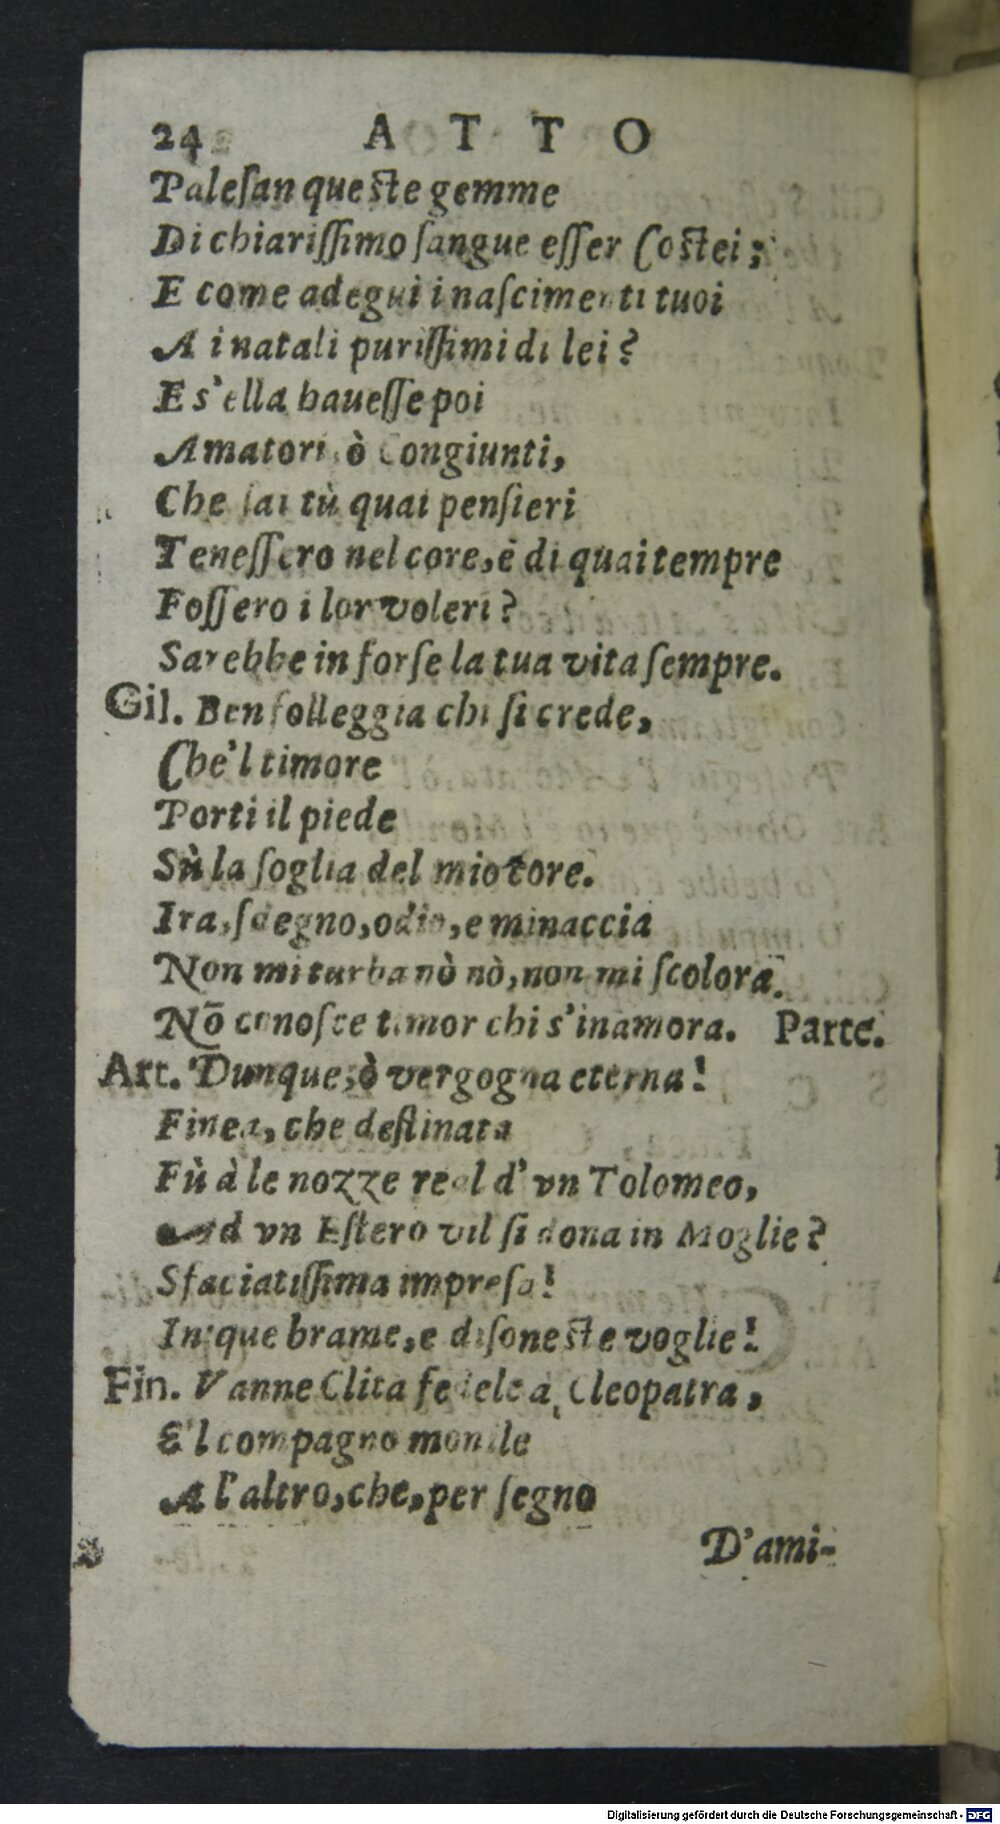 24 ATTO
Palesan queste gemme
Di chiarissimo sangue esser Costei;
E come adegui i nascimenti tuoi
A i natali purissimi di lei?
E s'ella hauesse poi
Amatori, ò Congiunti,
Che sai tù quai pensieri
Tenessero nel core, è di quai tempre
Fossero i lor voleri?
Sarebbe in forse la tua vita sempre.
Gil. Ben folleggia chi si crede,
Che'l timore
Porti il piede
Sù la soglia del mio core.
Ira, sdegno, odio, e minaccia
Non mi turba nò nò, non mi scolora.
Nõ conosce timor chi s'inamora. Parte.
Art. Dunque, ò vergogna eterna!
Finea, che destinata
Fù à le nozze real d'vn Tolomeo,
Ad vn Estero vil si dona in Moglie?
Sfaciatissima impresa!
Inique brame, e disoneste voglie!
Fin. Vanne Clita fedele a Cleopatra,
E'l compagno monile
A l'altro, che, per segno
D'ami-
Digitalisierung gefördert durch die Deutsche Forschungsgemeinschaft - DFG